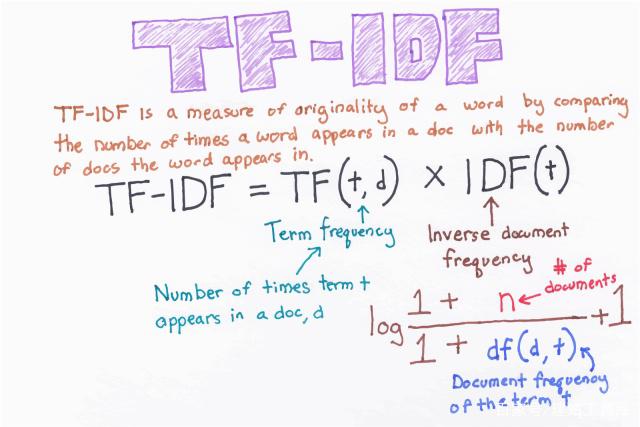 TF-IDF
TF-IDF is a measure of originality of a word by comparing
the number of times a word appears in a doc with the number
of docs the word appears in.
TF-IDF = TF(t, d) × IDF(t)
Term frequency
Inverse document
frequency
Number of times term t
appears in a doc, d
# of
documents
log
1 + n
1 + df(d, t)
+1
Document frequency
of the term t